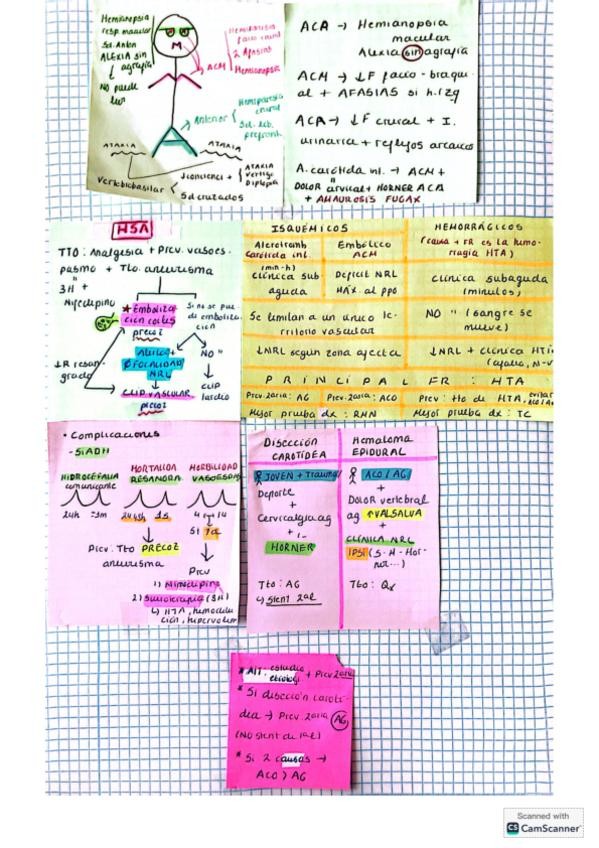 Hemianopsia
resp macular
Sd. Anton
ALEXIA sin
agrafia
NO puede
leer
Hemiparesia
facio crural
2 Afasias
ACM
Hemianopsia
Anterior
Hemiparesia
crural
Sd. lob.
prefront.
ATAXIA
ATAXIA
Vertebrobasilar
↓conciencia +
ATAXIA
Vertigo
Diplopia
Sd cruzados
ACA → Hemianopsia
macular
Alexia sin agrafia
ACM → ↓F facio-braqui
al + AFASIAS si h.izq
ACA → ↓F crural + I.
urinaria + reflejos arcaicos
A. carótida int. → ACM +
DOLOR cervical + HORNER ACA
+ AMAUROSIS FUGAX
HSA
TTO: Analgesia + Prev. vasoes-
pasmo + Tto. aneurisma
3H +
Nifedipino
* Emboliza-
ción coiles
precoz
Si no se pue-
de emboliza-
ción
Alerta +
Ø FOCALIDAD
NRL
NO "
↓R resan-
grado
CLIP VASCULAR
precoz
CLIP
tardío
ISQUÉMICOS
HEMORRÁGICOS
Aterotromb
Carótida int.
Embólico
ACM
(causa + FR es la hemo-
rragia HTA)
(min-h)
Clínica sub
aguda
Deficit NRL
MÁX. al ppo
Clínica subaguda
(minutos)
Se limitan a un único te-
rritorio vascular
NO " (sangre se
mueve)
↓NRL según zona afecta
↓NRL + Clínica HTi
(cefalea, N-V
PRINCIPAL FR: HTA
Prev. 2aria: AG
Prev. 2aria: ACO
Prev: tto de HTA, evitar
Mejor prueba dx: RMN
Mejor prueba dx: TC
• Complicaciones
- SIADH
HIDROCEFALIA
comunicante
MORTALIDA
RESANGRA
MORBILIDAD
VASOESPAS
24h
24-48h
1S
4 → 14
Prev: Tto PRECOZ
aneurisma
Prev
1) Nimodipino
2) Sueroterapia (3H)
↳ HTA, hemodilu
ción, hipervolem
Disección
CAROTÍDEA
Hematoma
EPIDURAL
JOVEN + Trauma/
Deporte
+
Cervicalgia ag
+/-
HORNER
Tto: AG
↳ Stent 2aL
ACO / AG
+
DOLOR vertebral
ag ↑VALSALVA
+
CLÍNICA NRL
IPSI (S-H-Hor-
ner...)
Tto: Qx
* AIT: estudio
etiologi + Prev 2aria
* Si disección carotí-
dea → Prev. 2aria AG
(NO stent de 1aL)
* Si 2 causas →
ACO > AG
Scanned with
CS CamScanner